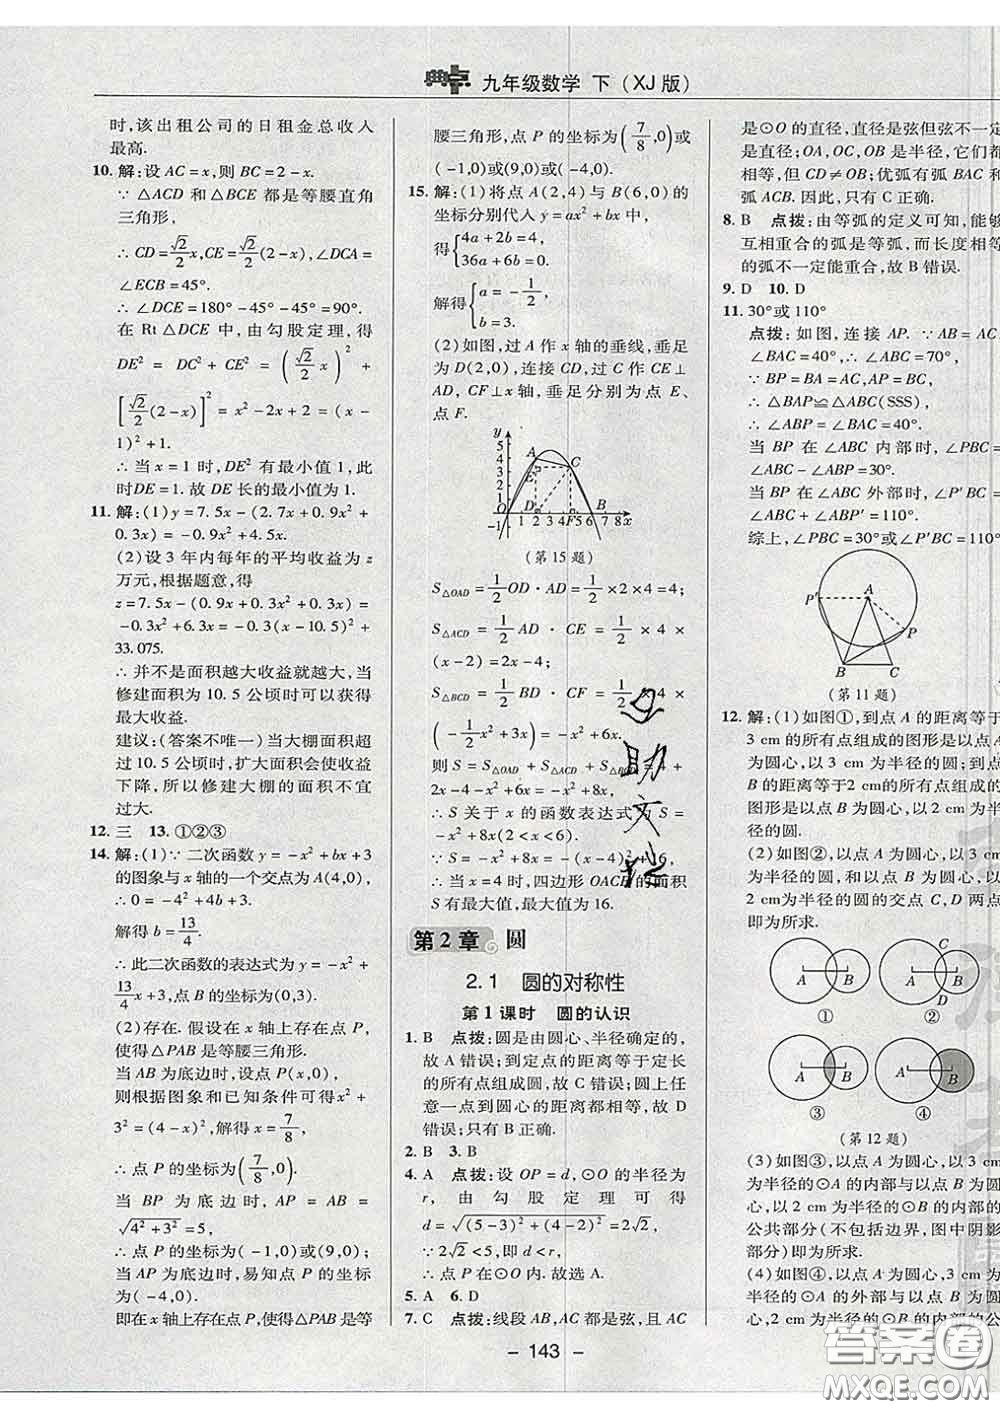 典点 九年级数学 下(XJ版)
时,该出租公司的日租金总收入
最高.
10. 解:设AC=x,则BC=2-x.
∵△ACD和△BCE都是等腰直角
三角形,
∴CD=√2/2 x,CE=√2/2(2-x),∠DCA=
∠ECB=45°.
∴∠DCE=180°-45°-45°=90°.
在Rt△DCE中,由勾股定理,得
DE²=DC²+CE²=(√2/2 x)²+
[√2/2(2-x)]²=x²-2x+2=(x-
1)²+1.
∴当x=1时,DE²有最小值1,此
时DE=1.故DE长的最小值为1.
11. 解:(1)y=7.5x-(2.7x+0.9x²+
0.3x)=-0.9x²+4.5x.
(2)设3年内每年的平均收益为z
万元,根据题意,得
z=7.5x-(0.9x+0.3x²+0.3x)=
-0.3x²+6.3x=-0.3(x-10.5)²+
33.075.
∴并不是面积越大收益就越大,当
修建面积为10.5公顷时可以获得
最大收益.
建议:(答案不唯一)当大棚面积超
过10.5公顷时,扩大面积会使收益
下降,所以修建大棚的面积不宜
过大.
12. 三 13. ①②③
14. 解:(1)∵二次函数y=-x²+bx+3
的图象与x轴的一个交点为A(4,0),
∴0=-4²+4b+3.
解得b=13/4.
∴此二次函数的表达式为y=-x²+
13/4 x+3,点B的坐标为(0,3).
(2)存在.当在x轴上存在点P,
使得△PAB是等腰三角形.
当AB为底边时,设点P(x,0),
则根据图象和已知条件可得x²+
3²=(4-x)²,解得x=7/8,
∴点P的坐标为(7/8,0);
当BP为底边时,AP=AB=
√4²+3²=5,
∴点P的坐标为(-1,0)或(9,0);
当AP为底边时,易知点P的坐标
为(-4,0).
即在x轴上存在点P,使得△PAB为等
腰三角形,点P的坐标为(7/8,0)或
(-1,0)或(9,0)或(-4,0).
15. 解:(1)将点A(2,4)与B(6,0)的
坐标分别代入y=ax²+bx中,
得{4a+2b=4,
36a+6b=0.
解得{a=-1/2,
b=3.
(2)如图,过A作x轴的垂线,垂足
为D(2,0),连接CD,过C作CE⊥
AD,CF⊥x轴,垂足分别为点E、
点F.
y
5
4
3
2
1
A
E
C
O
D
F
B
-1 1 2 3 4 5 6 7 8 x
-1
(第15题)
S△OAD=1/2 OD·AD=1/2×2×4=4;
S△ACD=1/2 AD·CE=1/2×4×
(x-2)=2x-4;
S△BCD=1/2 BD·CF=1/2×4×
(-1/2 x²+3x)=-x²+6x.
则S=S△OAD+S△ACD+S△BCD=4+
2x-4-x²+6x=-x²+8x,
∴S关于x的函数表达式为S=
-x²+8x(2<x<6).
∵S=-x²+8x=-(x-4)²+16,
∴当x=4时,四边形OACB的面积
S有最大值,最大值为16.
第2章 圆
2.1 圆的对称性
第1课时 圆的认识
1. B 点拨:圆是由圆心、半径确定的,
故A错误;到定点的距离等于定长
的所有点组成圆,故C错误;圆上任
意一点到圆心的距离都相等,故D
错误;只有B正确.
2. B 3. B
4. A 点拨:设OP=d,⊙O的半径为
r,由勾股定理可得
d=√(5-3)²+(4-2)²=2√2,
∵2√2<5,即d<r,
∴点P在⊙O内.故选A.
5. A 6. D
7. C 点拨:线段AB,AC都是弦,且AC
是⊙O的直径,直径是弦但弦不一定
是直径;OA,OC,OB是半径,它们都
相等,但CD≠OB;优弧有弧BAC和
弧ACB.因此,只有C正确.
8. B 点拨:由等弧的定义可知,能够
互相重合的弧是等弧,而长度相等
的弧不一定能重合,故B错误.
9. D 10. D
11. 30°或110°
点拨:如图,连接AP.∵AB=AC,
∠BAC=40°,∴∠ABC=70°,
∵BP=BA=AC,AP=BC,
∴△BAP≌△ABC(SSS),
∴∠ABP=∠BAC=40°.
当BP在∠ABC内部时,∠PBC=
∠ABC-∠ABP=30°.
当BP在∠ABC外部时,∠P′BC=
∠ABC+∠ABP′=110°.
综上,∠PBC=30°或∠P′BC=110°.
P′
A
P
B
C
(第11题)
12. 解:(1)如图①,到点A的距离等于
3 cm的所有点组成的图形是以点A
为圆心,以3 cm为半径的圆;到点
B的距离等于2 cm的所有点组成的
图形是以点B为圆心,以2 cm为半
径的圆.
(2)如图②,以点A为圆心,以3 cm
为半径的圆与以点B为圆心,以
2 cm为半径的圆的交点C,D两点
即为所求.
A
B
①
A
B
C
D
②
A
B
③
A
B
④
(第12题)
(3)如图③,以点A为圆心,以3 cm
为半径的⊙A的内部与以点B为圆
心,以2 cm为半径的⊙B的内部的
公共部分(不包括边界,图中阴影
部分)即为所求.
(4)如图④,以点A为圆心,以3 cm
半径的
⊙B的内部的公
- 143 -
答案圈
MXQE.COM